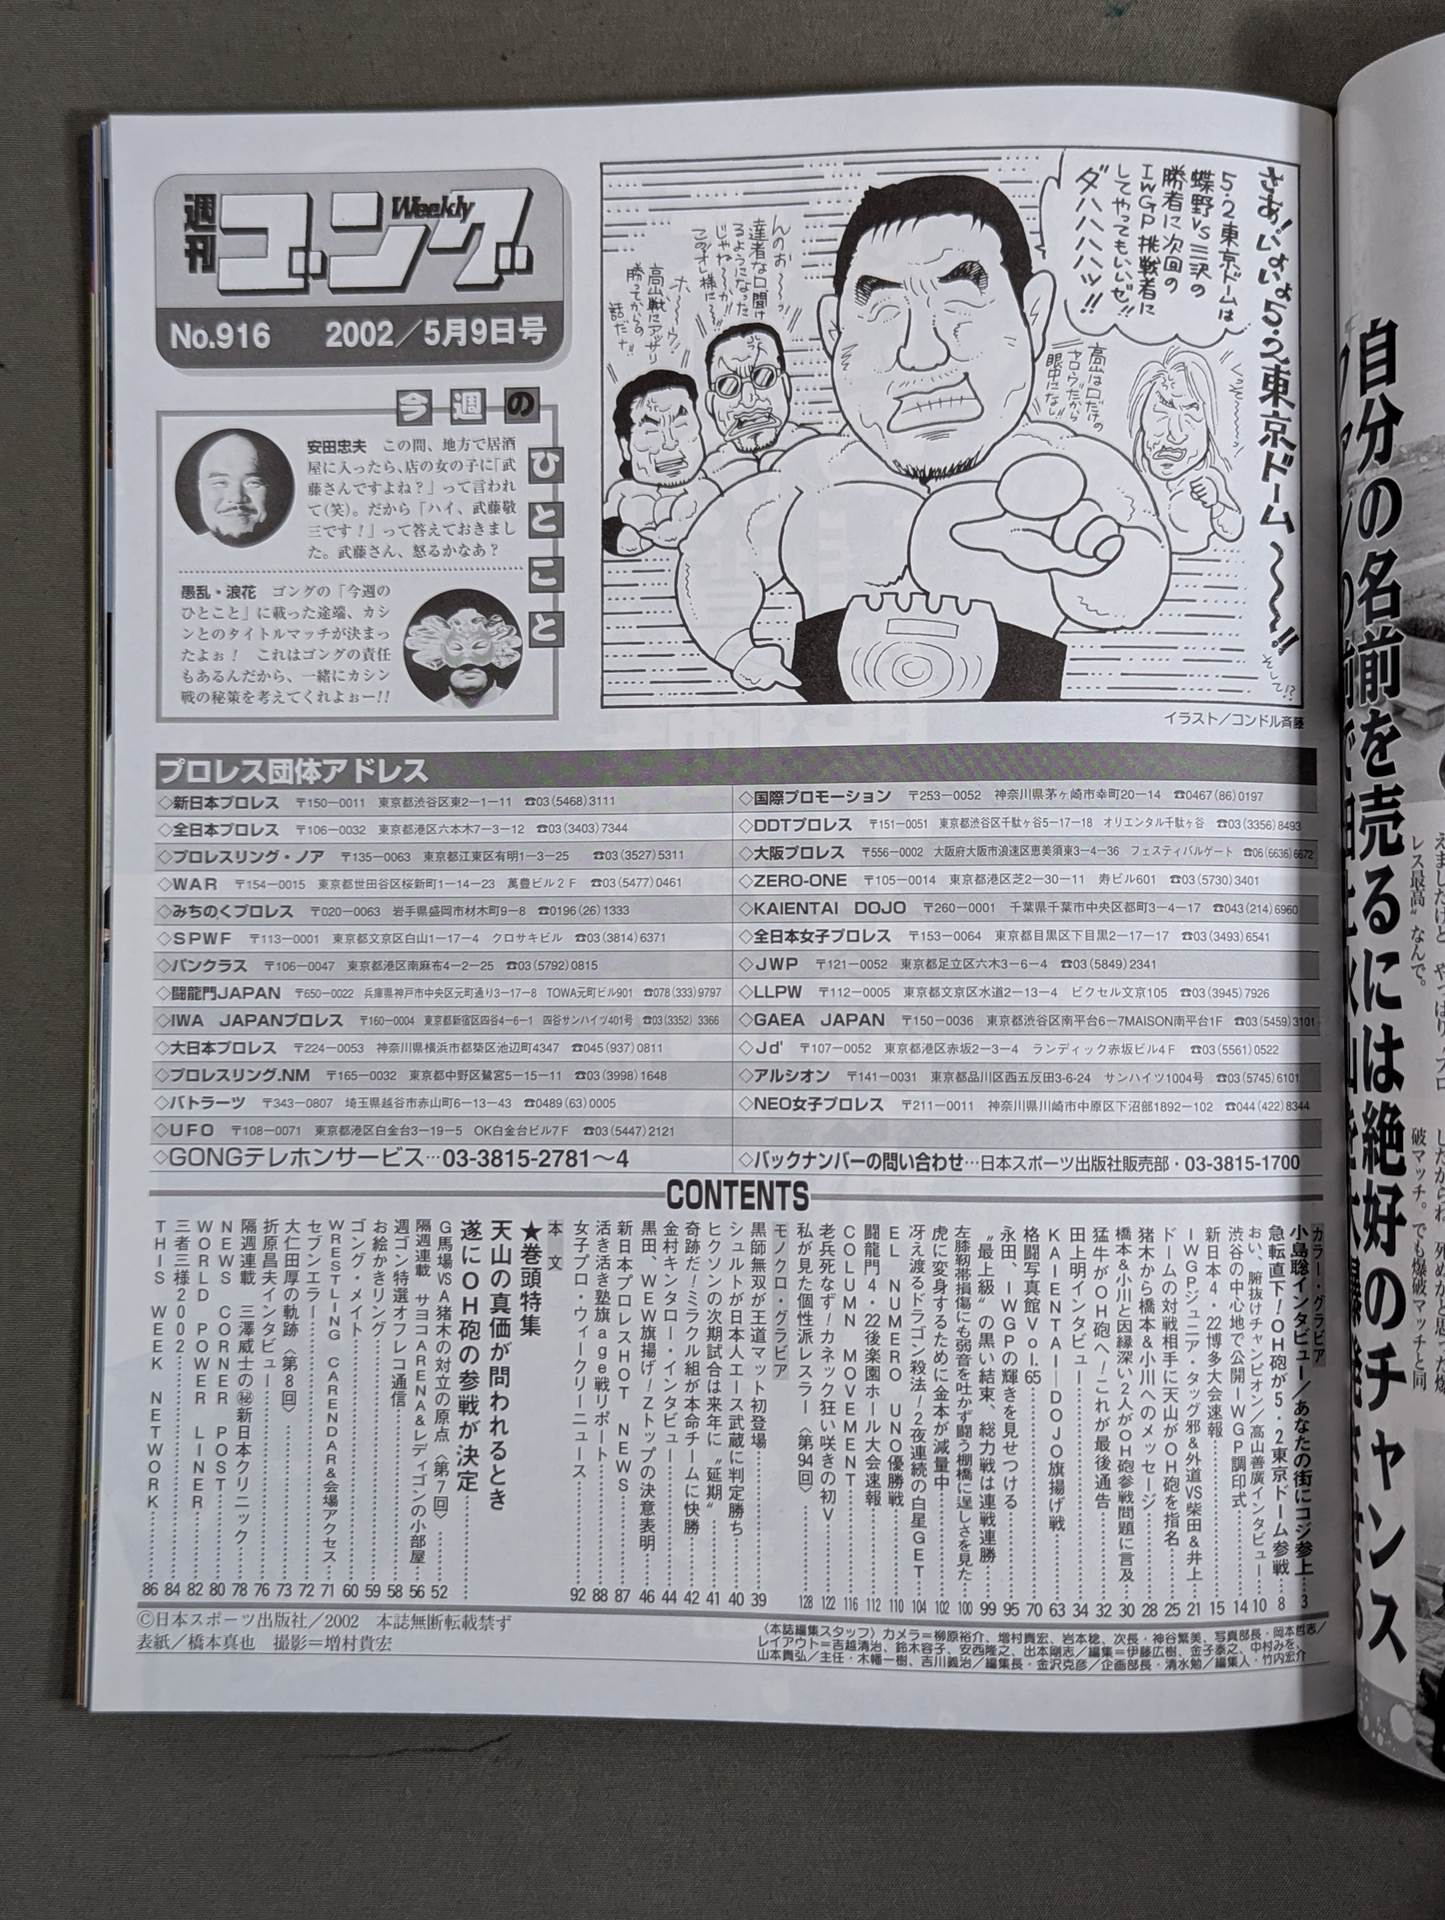 週刊ゴング
Weekly
No.916 2002／5月9日号
今週のひとこと
安田忠夫 この間、地方で居酒
屋に入ったら、店の女の子に「武
藤さんですよね？」って言われ
て(笑)。だから「ハイ、武藤敬
三です！」って答えておきまし
た。武藤さん、怒るかなあ？
愚乱・浪花 ゴングの「今週の
ひとこと」に載った途端、カシ
ンとのタイトルマッチが決まっ
たよぉ！ これはゴングの責任
もあるんだから、一緒にカシン
戦の秘策を考えてくれよぉー!!
さあ！いよいよ5・2東京ドーム〜〜!!
そして!?
5・2東京ドームは
蝶野VS三沢の
勝者に次回の
IWGP挑戦者に
してやってもいいゼ!!
ダハハハハッ!!
高山は口だけの
ヤロウだから
眼中になし!!
んのお〜っ
達者な口聞け
るようになった
じゃね〜か!!
このオレ様に〜っ
ホ〜〜ウ
高山戦にアッサリ
勝ってからの
話だナ!!
イラスト／コンドル斉藤
プロレス団体アドレス
◇新日本プロレス 〒150-0011 東京都渋谷区東2-1-11 ☎03(5468)3111
◇全日本プロレス 〒106-0032 東京都港区六本木7-3-12 ☎03(3403)7344
◇プロレスリング・ノア 〒135-0063 東京都江東区有明1-3-25 ☎03(3527)5311
◇WAR 〒154-0015 東京都世田谷区桜新町1-14-23 萬豊ビル2F ☎03(5477)0461
◇みちのくプロレス 〒020-0063 岩手県盛岡市材木町9-8 ☎0196(26)1333
◇SPWF 〒113-0001 東京都文京区白山1-17-4 クロサキビル ☎03(3814)6371
◇パンクラス 〒106-0047 東京都港区南麻布4-2-25 ☎03(5792)0815
◇闘龍門JAPAN 〒650-0022 兵庫県神戸市中央区元町通り3-17-8 TOWA元町ビル901 ☎078(333)9797
◇IWA JAPANプロレス 〒160-0004 東京都新宿区四谷4-6-1 四谷サンハイツ401号 ☎03(3352)3366
◇大日本プロレス 〒224-0053 神奈川県横浜市都築区池辺町4347 ☎045(937)0811
◇プロレスリング.NM 〒165-0032 東京都中野区鷺宮5-15-11 ☎03(3998)1648
◇バトラーツ 〒343-0807 埼玉県越谷市赤山町6-13-43 ☎0489(63)0005
◇UFO 〒108-0071 東京都港区白金台3-19-5 OK白金台ビル7F ☎03(5447)2121
◇GONGテレホンサービス…03-3815-2781〜4
◇国際プロモーション 〒253-0052 神奈川県茅ヶ崎市幸町20-14 ☎0467(86)0197
◇DDTプロレス 〒151-0051 東京都渋谷区千駄ヶ谷5-17-18 オリエンタル千駄ヶ谷 ☎03(3356)8493
◇大阪プロレス 〒556-0002 大阪府大阪市浪速区恵美須東3-4-36 フェスティバルゲート ☎06(6636)6672
◇ZERO-ONE 〒105-0014 東京都港区芝2-30-11 寿ビル601 ☎03(5730)3401
◇KAIENTAI DOJO 〒260-0001 千葉県千葉市中央区都町3-4-17 ☎043(214)6960
◇全日本女子プロレス 〒153-0064 東京都目黒区下目黒2-17-17 ☎03(3493)6541
◇JWP 〒121-0052 東京都足立区六木3-6-4 ☎03(5849)2341
◇LLPW 〒112-0005 東京都文京区水道2-13-4 ビクセル文京105 ☎03(3945)7926
◇GAEA JAPAN 〒150-0036 東京都渋谷区南平台6-7MAISON南平台1F ☎03(5459)3101
◇Jd' 〒107-0052 東京都港区赤坂2-3-4 ランディック赤坂ビル4F ☎03(5561)0522
◇アルシオン 〒141-0031 東京都品川区西五反田3-6-24 サンハイツ1004号 ☎03(5745)6101
◇NEO女子プロレス 〒211-0011 神奈川県川崎市中原区下沼部1892-102 ☎044(422)8344
◇バックナンバーの問い合わせ…日本スポーツ出版社販売部・03-3815-1700
CONTENTS
カラー・グラビア
小島聡インタビュー／あなたの街にコジ参上…3
急転直下！OH砲が5・2東京ドーム参戦…8
おい、腑抜けチャンピオン／高山善廣インタビュー…10
渋谷の中心地で公開IWGP調印式…14
新日本4・22博多大会速報…15
IWGPジュニア・タッグ邪＆外道VS柴田＆井上…21
ドームの対戦相手に天山がOH砲を指名…25
猪木から橋本＆小川へのメッセージ…28
橋本＆小川と因縁深い2人がOH砲参戦問題に言及…30
猛牛がOH砲へ！これが最後通告…32
田上明インタビュー…34
KAIENTAI―DOJO旗揚げ戦…63
格闘写真館Vol.65…70
永田、IWGPの輝きを見せつける…95
“最上級”の黒い結束、総力戦は連戦連勝…99
左膝靭帯損傷にも弱音を吐かず闘う棚橋に逞しさを見た…100
虎に変身するために金本が減量中…102
冴え渡るドラゴン殺法！2夜連続の白星GET…104
EL NUMERO UNO優勝戦…110
闘龍門4・22後楽園ホール大会速報…112
COLUMN MOVEMENT…116
老兵死なず！カネック狂い咲きの初V…122
私が見た個性派レスラー〈第94回〉…128
モノクロ・グラビア
黒師無双が王道マット初登場…39
シュルトが日本人エース武蔵に判定勝ち…40
ヒクソンの次期試合は来年に“延期”…41
奇跡だ！ミラクル組が本命チームに快勝…42
金村キンタロー・インタビュー…44
黒田、WEW旗揚げ！Zトップの決意表明…46
新日本プロレスHOT NEWS…87
活き活き塾旗age戦リポート…88
女子プロ・ウィークリーニュース…92
本文
★巻頭特集
天山の真価が問われるとき
遂にOH砲の参戦が決定
G馬場VSA猪木の対立の原点〈第7回〉…52
隔週連載 サヨコARENA＆レディゴンの小部屋…56
週ゴン特選オフレコ通信…58
お絵かきリング…59
ゴング・メイト…60
WRESTLING CARENDAR＆会場アクセス…71
セブンエラー…72
大仁田厚の軌跡〈第8回〉…73
折原昌夫インタビュー…76
隔週連載 三澤威士の㊙新日本クリニック…78
NEWS CORNER POST…80
WORLD POWER LINER…82
三者三様2002…84
THIS WEEK NETWORK…86
©日本スポーツ出版社／2002 本誌無断転載禁ず
表紙／橋本真也 撮影＝増村貴宏
〈本誌編集スタッフ〉カメラ＝柳原裕介、増村貴宏、岩本稔、次長・神谷繁美、写真部長・岡本哲志／
レイアウト＝吉越清治、鈴木容子、安西隆之、出本剛志／編集＝伊藤広樹、金子泰之、中村みを、
山本貴弘／主任・木幡一樹、吉川義治／編集長・金沢克彦／企画部長・清水勉／編集人・竹内宏介
自分の名前を売るには絶好のチャンス
レス最高”なんで。
破マッチ。でも爆破マッチと同